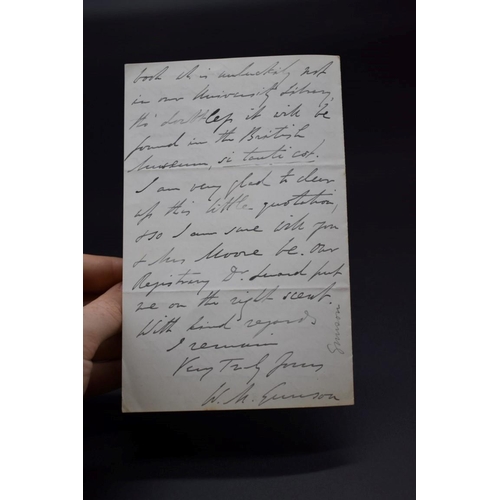 book it is unluckily not
in our University Library,
tho' doubtless it will be
found in the British
Museum, si tanti est.
I am very glad to clear
up this little quotation,
& so I am sure will you
& Mrs Moore be. Our
Registrary Dr. Luard put
me on the right scent.
With kind regards
I remain
Very Truly Yours
W. M. Gunson
Gunson